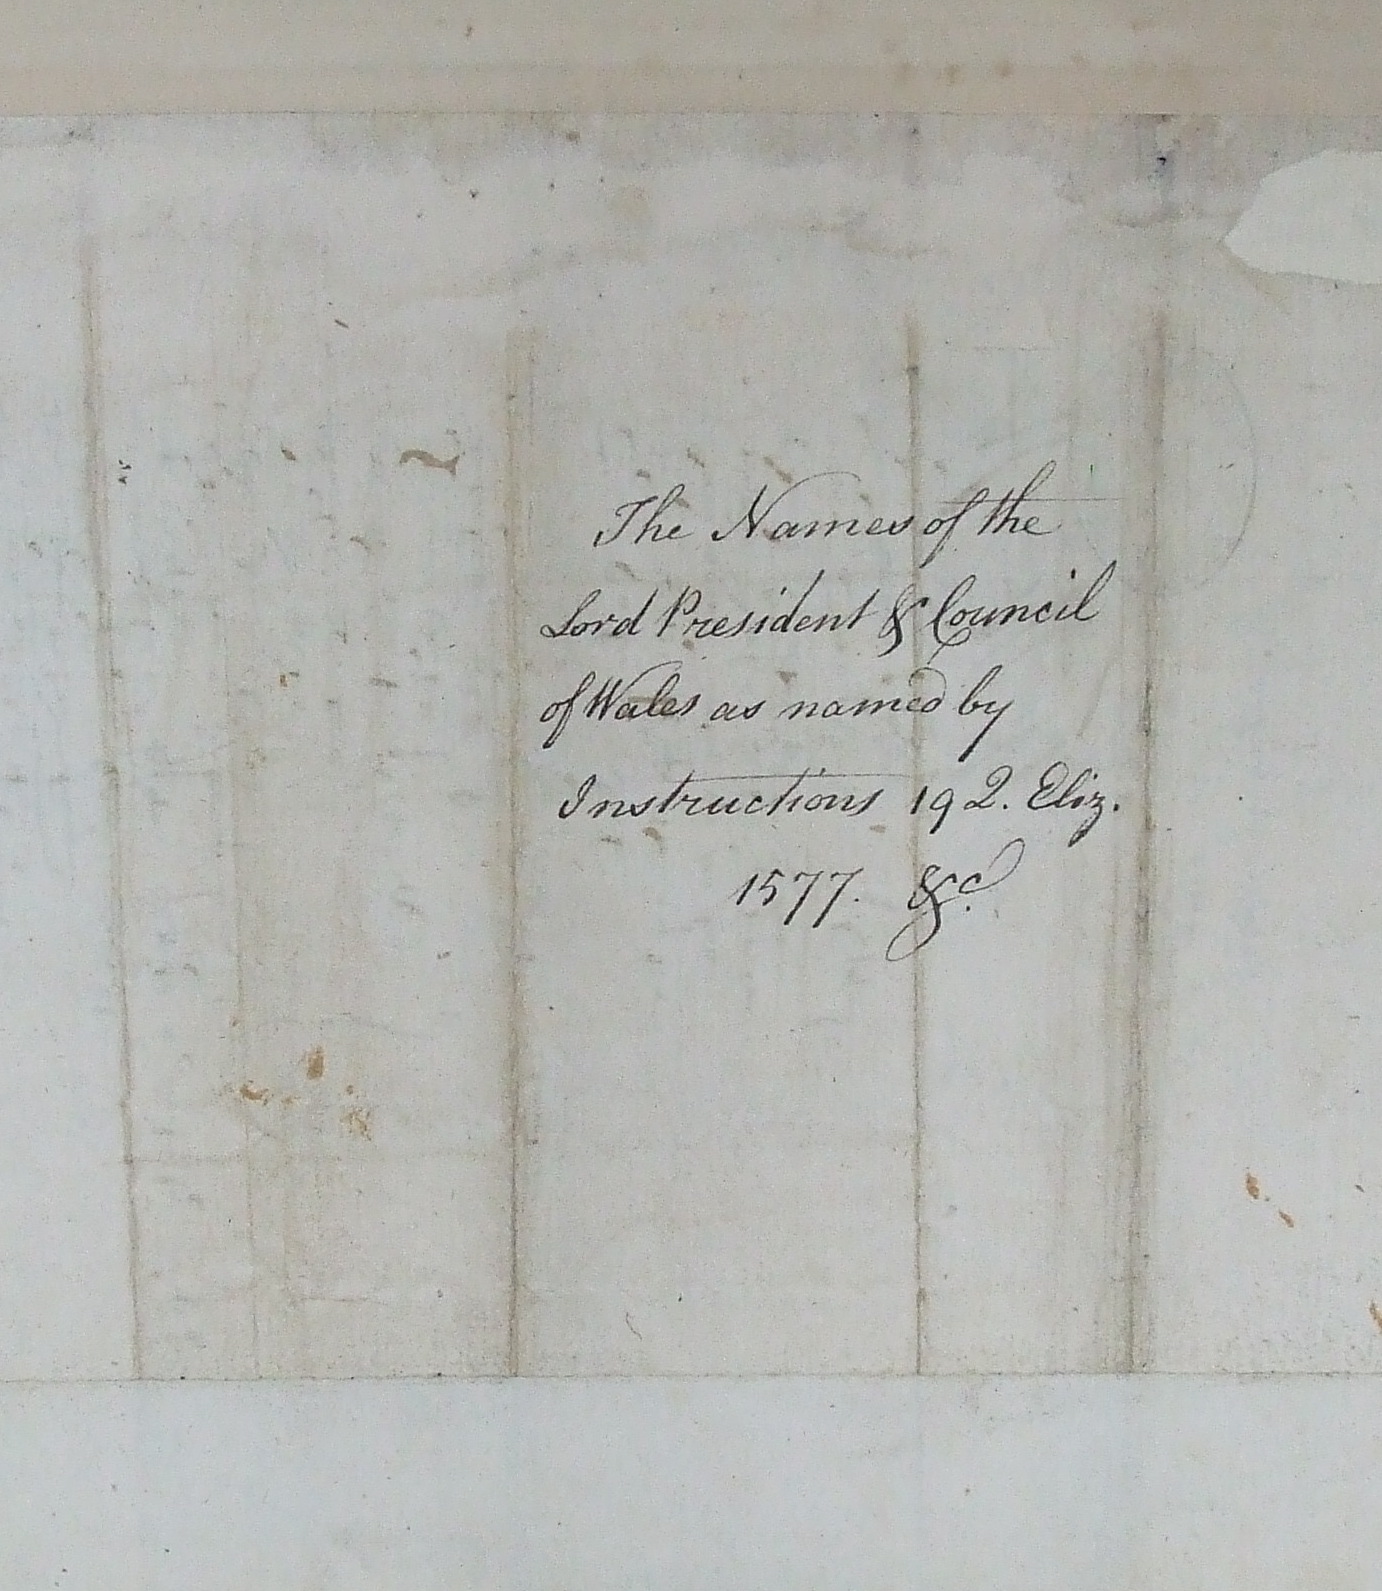 The Names of the
Lord President & Council
of Wales as named by
Instructions 19 Q. Eliz.
1577. &c.